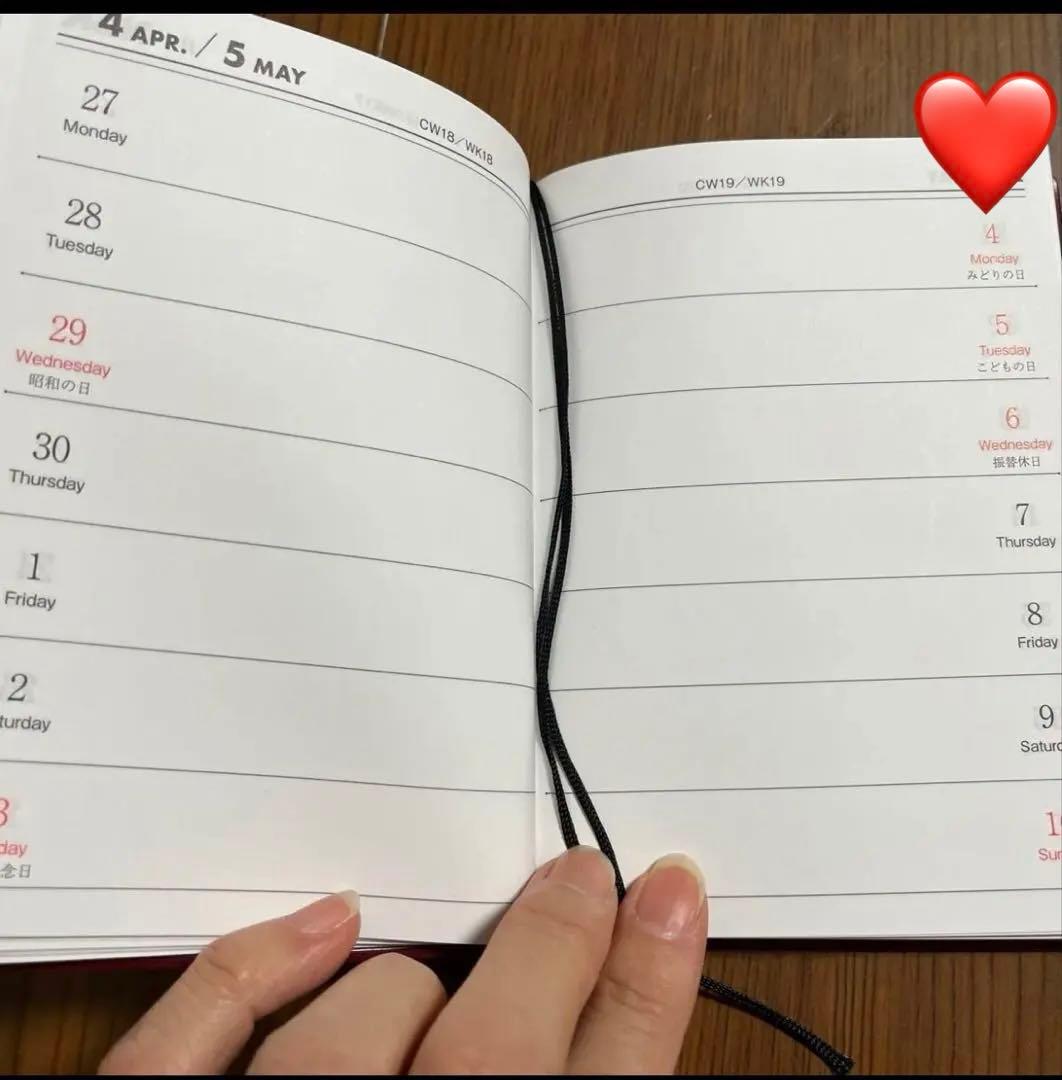 4 APR. / 5 MAY
CW18/WK18
27
Monday
28
Tuesday
29
Wednesday
昭和の日
30
Thursday
1
Friday
2
turday
3
day
念日
CW19/WK19
4
Monday
みどりの日
5
Tuesday
こどもの日
6
Wednesday
振替休日
7
Thursday
8
Friday
9
Satur
1
Sun